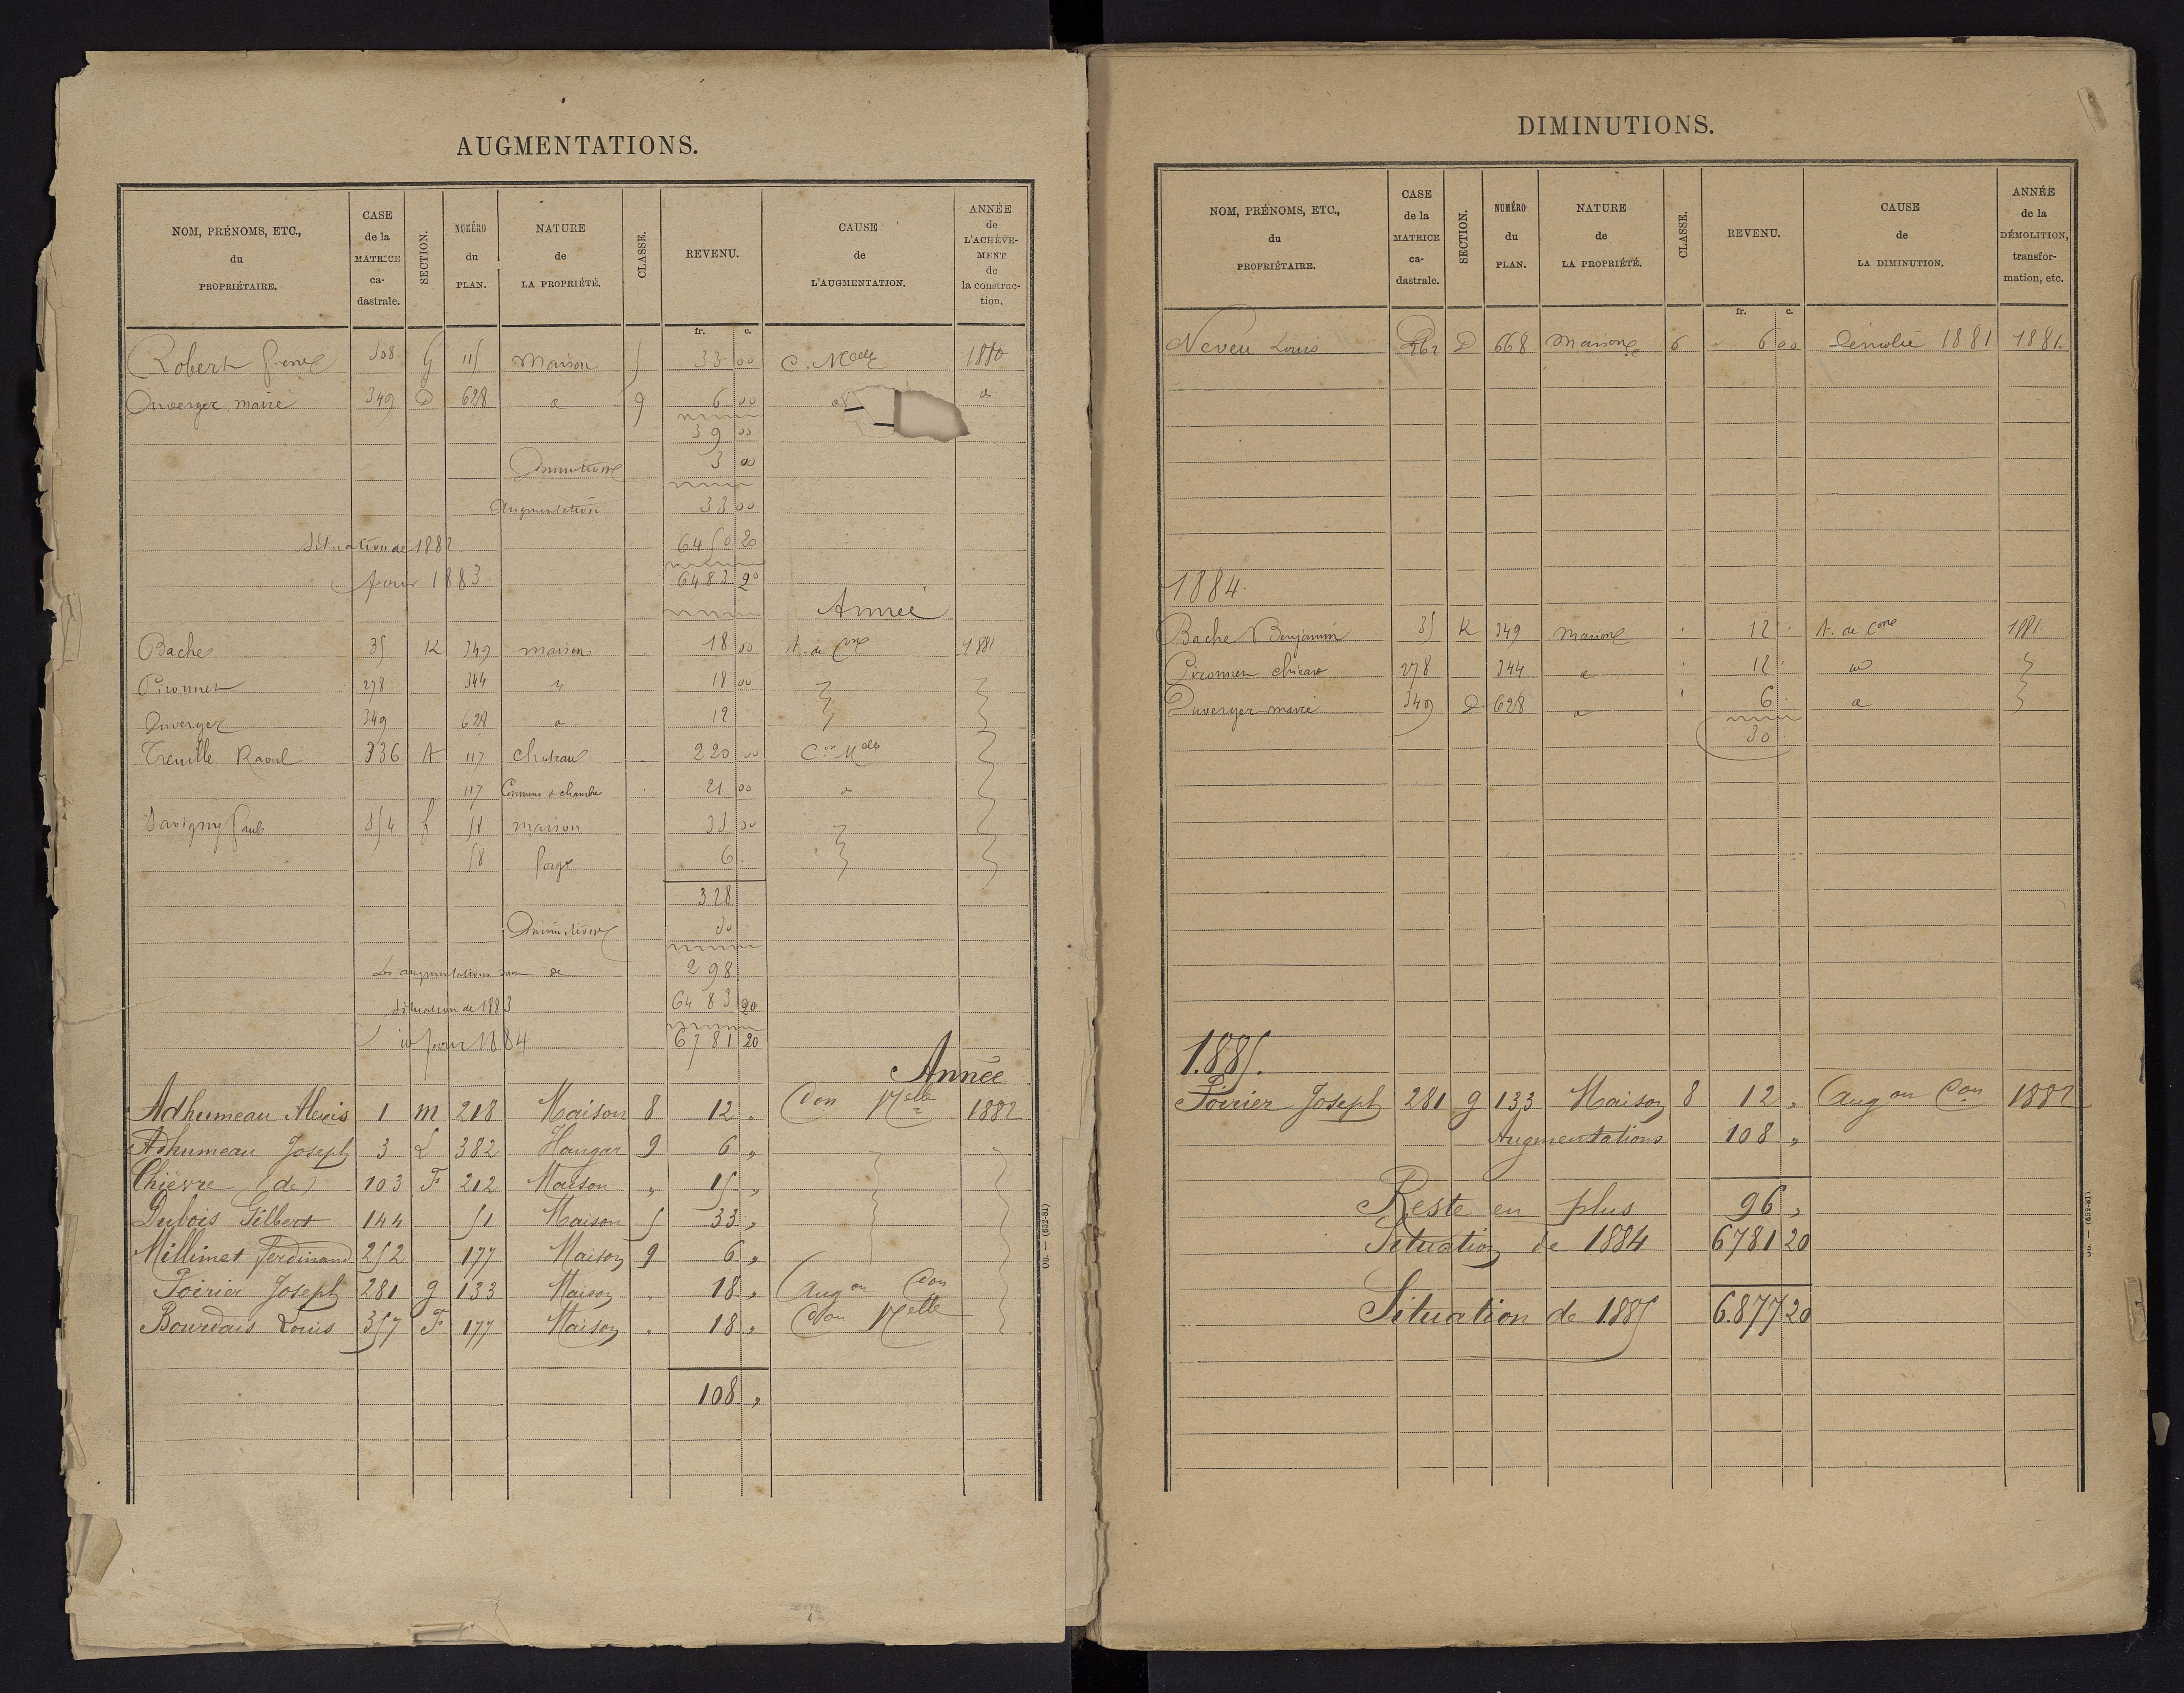 AUGMENTATIONS.
NOM, PRÉNOMS, ETC., du PROPRIÉTAIRE.
CASE de la MATRICE ca-dastrale.
SECTION.
NUMÉRO du PLAN.
NATURE de LA PROPRIÉTÉ.
CLASSE.
REVENU.
CAUSE de L'AUGMENTATION.
ANNÉE de L'ACHÈVE-MENT de la construc-tion.
fr. c.
Robert 508 G 115 Maison 5 33 00 C. Nelle 1880
Duverger marie 349 D 628 d 9 6 00 d
39 00
Diminution 00
Augmentation 33 00
Situation de 1882 6450 20
pour 1883 6483 20
Année
Bache 35 K 349 maison 18 00 A. de Con 1881
Pironnet 278 344 18 00
Duverger 349 628 12
Treuille Raoul 336 A 117 chateau 220 00 Con Nelle
117 Communs & chambre 21 00
Savigny Paul 854 f 58 maison 33 00
58 forge 6
328
Diminution 30
Les augmentations sont de 298
Situation de 1883 6483 20
id pour 1884 6781 20
Année
Adhumeau Alexis 1 m 218 Maison 8 12 " Con Nelle 1882
Adhumeau Joseph 3 L 382 Hangar 9 6 "
Chièvre (de) 103 F 212 Maison " 15 "
Dubois Gilbert 144 51 Maison 5 33 "
Millimet Ferdinand 252 177 Maison 9 6 "
Poirier Joseph 281 g 133 Maison " 18 " Augon Con
Bourdais Louis 357 F 177 Maison " 18 " Con Nelle
108 "
OU. — (632-81)
DIMINUTIONS.
NOM, PRÉNOMS, ETC., du PROPRIÉTAIRE.
CASE de la MATRICE ca-dastrale.
SECTION.
NUMÉRO du PLAN.
NATURE de LA PROPRIÉTÉ.
CLASSE.
REVENU.
CAUSE de LA DIMINUTION.
ANNÉE de la DÉMOLITION, transfor-mation, etc.
fr. c.
Neveu Louis 262 D 668 maison 6 6 00 Démolie 1881 1881.
1884.
Bache Benjamin 35 K 349 maison 12 A. de Con 1881
Pironnet 278 344 12
Duverger marie 349 D 628 6
30
1.885.
Poirier Joseph 281 g 133 Maison 8 12 " Augon Con 1882
Augmentations 108 "
Reste en plus 96 "
Situation de 1884 6781 20
Situation de 1885 6.877 20